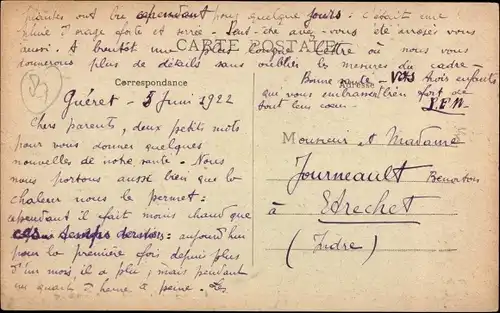 CARTE POSTALE
Correspondance
Adresse
Guéret - 5 Juin 1922
Chers parents, deux petits mots
pour vous donner quelques
nouvelles de notre santé. Nous
nous portons aussi bien que la
chaleur nous le permet:
cependant il fait moins chaud que
ces temps derniers: aujourd'hui
pour la première fois depuis plus
d'un mois, il a plu, mais pendant
un quart d'heure à peine. Les
ont bu cependant pour quelques jours. c'était une
pluie d'orage forte et serrée. Peut-être avez-vous été arrosés vous
aussi. A bientôt une plus longue lettre où nous vous
donnerons plus de détails sans oublier les mesures du cadre -
Bonne santé - Vos trois enfants
qui vous embrassent bien fort de
tout leur cœur.
Monsieur et Madame
Journeault
à Etrechet
(Indre)